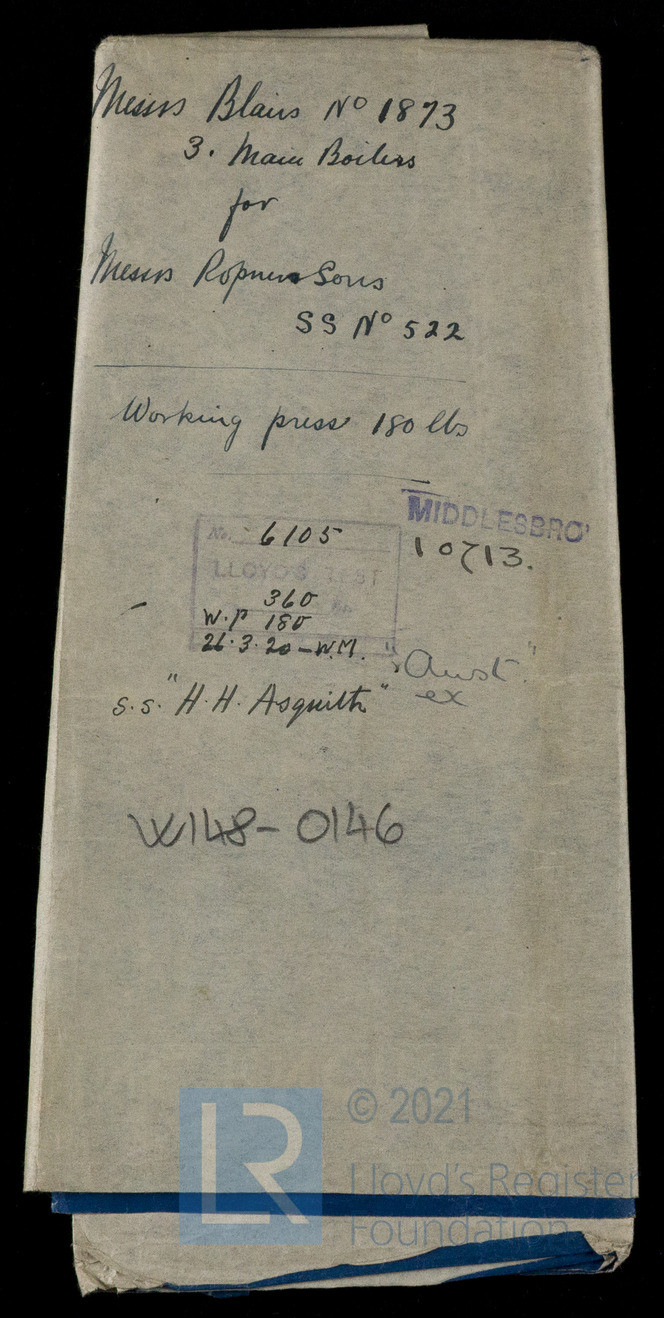 Messrs Blairs No 1873
3. Main Boilers
for
Messrs Ropner Sons
SS No 522
Working press 180 lbs
MIDDLESBRO'
10713.
No. 6105
LLOYD'S TEST
360
W.P 180
26.3.20 - W.M.
"Aust."
ex
s.s. "H.H. Asquith"
W148-0146
LR
© 2021
Lloyd's Register
Foundation